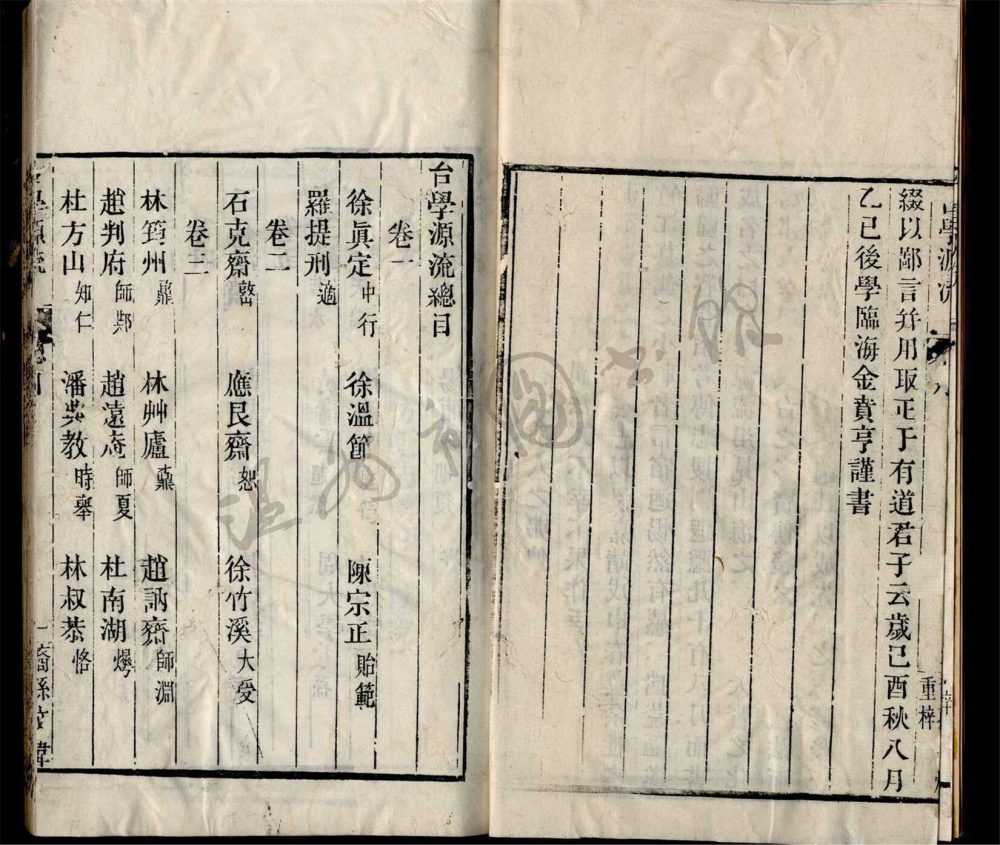 綴以鄙言幷用取正于有道君子云歲己酉秋八月
乙巳後學臨海金賁亨謹書
重梓
台學源流總目
卷一
徐眞定中行 徐溫節 陳宗正貽範
羅提刑適
卷二
石克齋𡼖 應艮齋恕 徐竹溪大受
卷三
林筠州鼐 林艸廬鼒 趙訥齋師淵
趙判府師郱 趙遠庵師夏 杜南湖煜
杜方山知仁 潘吳教時舉 林叔恭恪